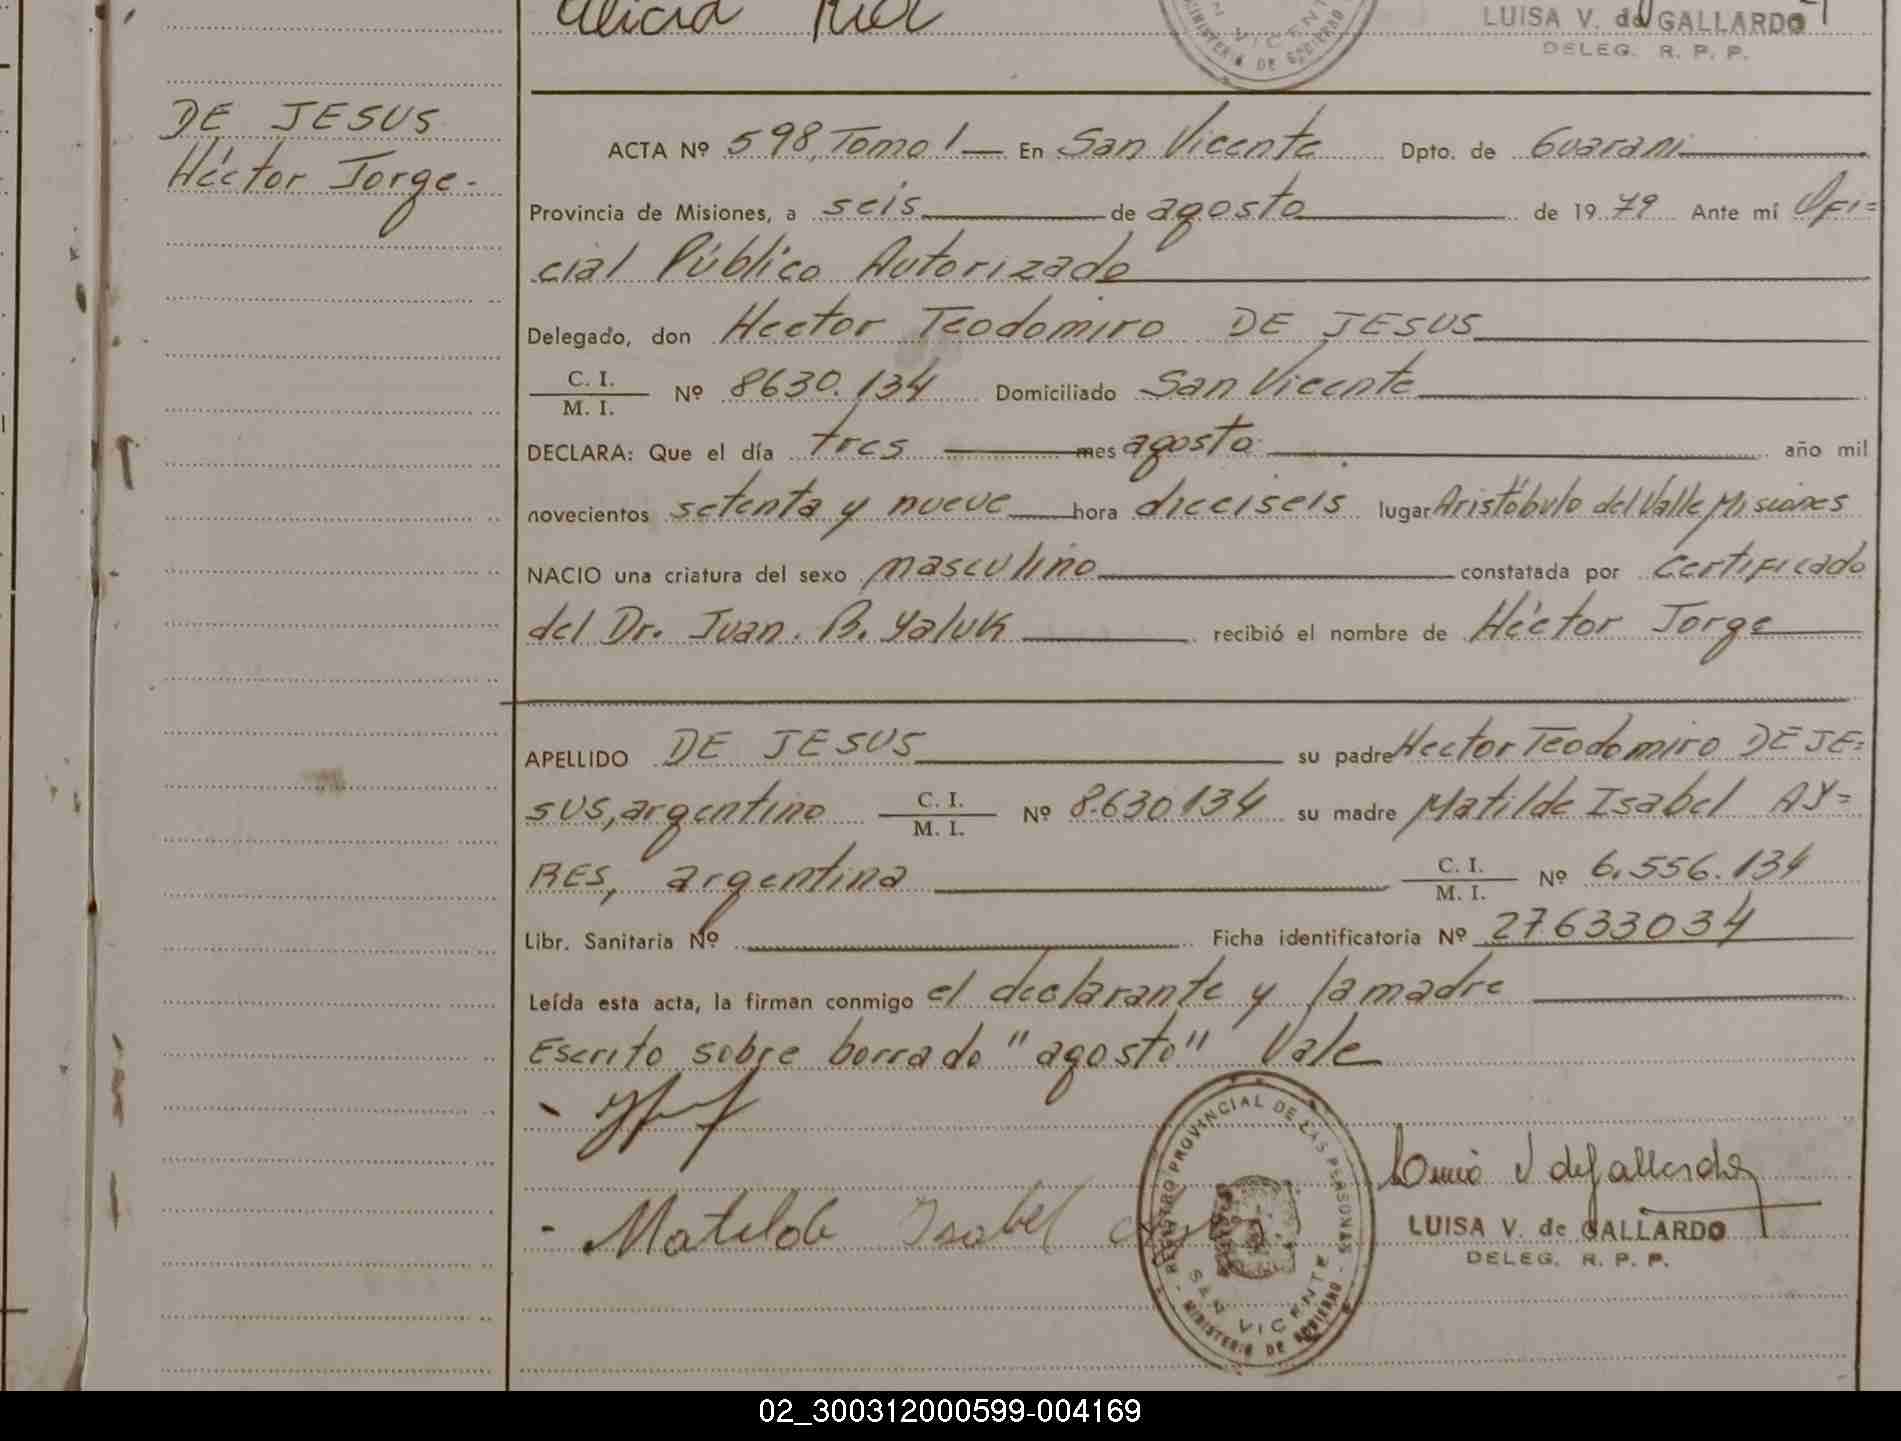 Alicia
SAN VICENTE
MINISTERIO DE GOBIERNO
LUISA V. de GALLARDO
DELEG. R. P. P.
DE JESUS
Héctor Jorge.-
ACTA Nº 598, Tomo 1 — En San Vicente Dpto. de Guarani
Provincia de Misiones, a seis de agosto de 1979 Ante mí Ofi=
cial Público Autorizado
Delegado, don Hector Teodomiro DE JESUS
C. I.
M. I. Nº 8630.134 Domiciliado San Vicente
DECLARA: Que el día tres mes agosto año mil
novecientos setenta y nueve hora dieciseis lugar Aristóbulo del Valle Misiones
NACIO una criatura del sexo masculino constatada por Certificado
del Dr. Juan. B. Yaluk recibió el nombre de Héctor Jorge
APELLIDO DE JESUS su padre Hector Teodomiro DE JE=
SUS, argentino C. I. M. I. Nº 8.630.134 su madre Matilde Isabel AY=
RES, argentina C. I. M. I. Nº 6.556.134
Libr. Sanitaria Nº Ficha identificatoria Nº 27.633034
Leída esta acta, la firman conmigo el declarante y la madre
Escrito sobre borrado "agosto" Vale
REGISTRO PROVINCIAL DE LAS PERSONAS
SAN VICENTE
MINISTERIO DE GOBIERNO
V de Gallardo
- Matilde Isabel
LUISA V. de GALLARDO
DELEG. R. P. P.
02_300312000599-004169